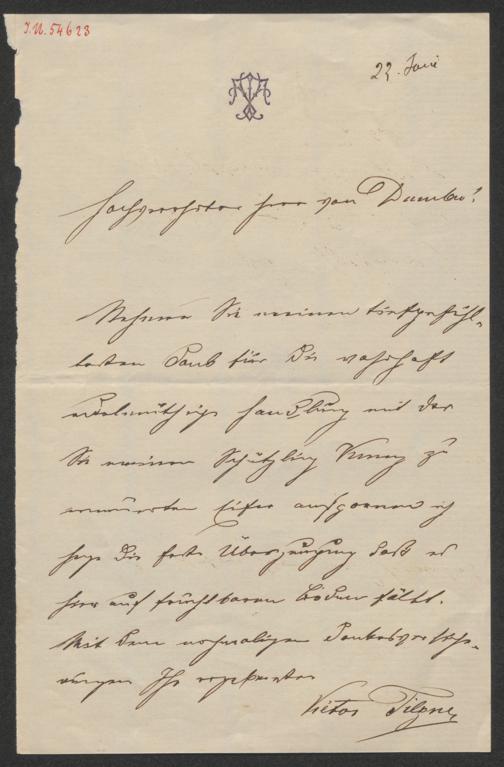 J.N. 54623
22. Juni
Hochverehrter Herr von Dumba!
Nehmen Sie meinen tiefgefühl-
testen Dank für die wahrhaft
edelmüthige Handlung mit der
Sie meinen Schützling Kunz zu
erneuerten Eifer anspornen ich
hege die feste Überzeugung daß es
hier auf fruchtbaren Boden fällt.
Mit den nochmaligen Dankesversiche-
rungen Ihr ergebenster
Victor Tilgner